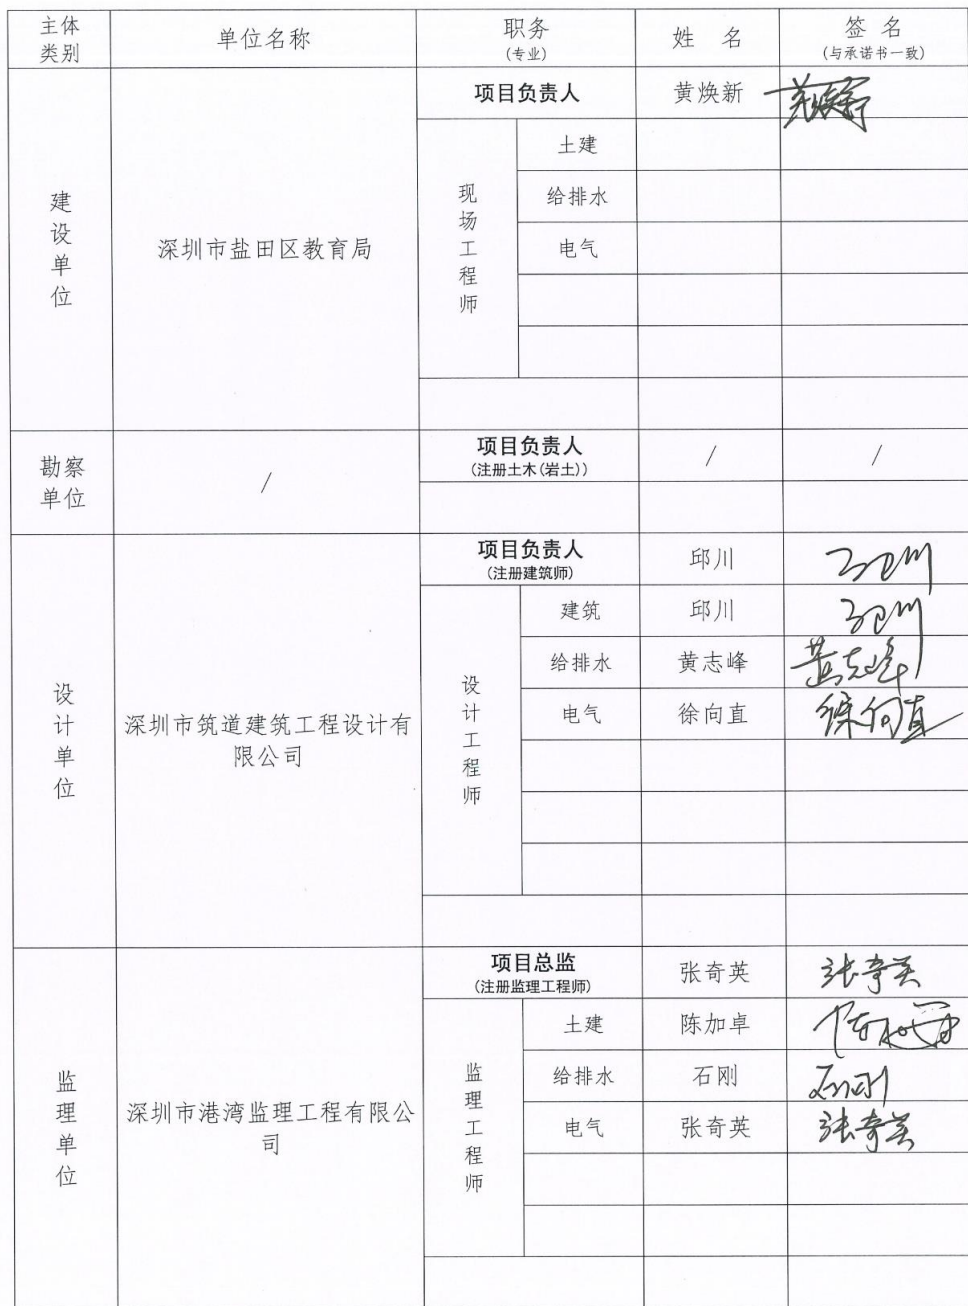 主体
类别
单位名称
职务
(专业)
姓 名
签 名
(与承诺书一致)
建设单位
深圳市盐田区教育局
项目负责人
黄焕新
黄焕新
现场工程师
土建
给排水
电气
勘察
单位
/
项目负责人
(注册土木(岩土))
/
/
设计单位
深圳市筑道建筑工程设计有
限公司
项目负责人
(注册建筑师)
邱川
邱川
设计工程师
建筑
邱川
邱川
给排水
黄志峰
黄志峰
电气
徐向直
徐向直
监理单位
深圳市港湾监理工程有限公
司
项目总监
(注册监理工程师)
张奇英
张奇英
监理工程师
土建
陈加卓
陈加卓
给排水
石刚
石刚
电气
张奇英
张奇英